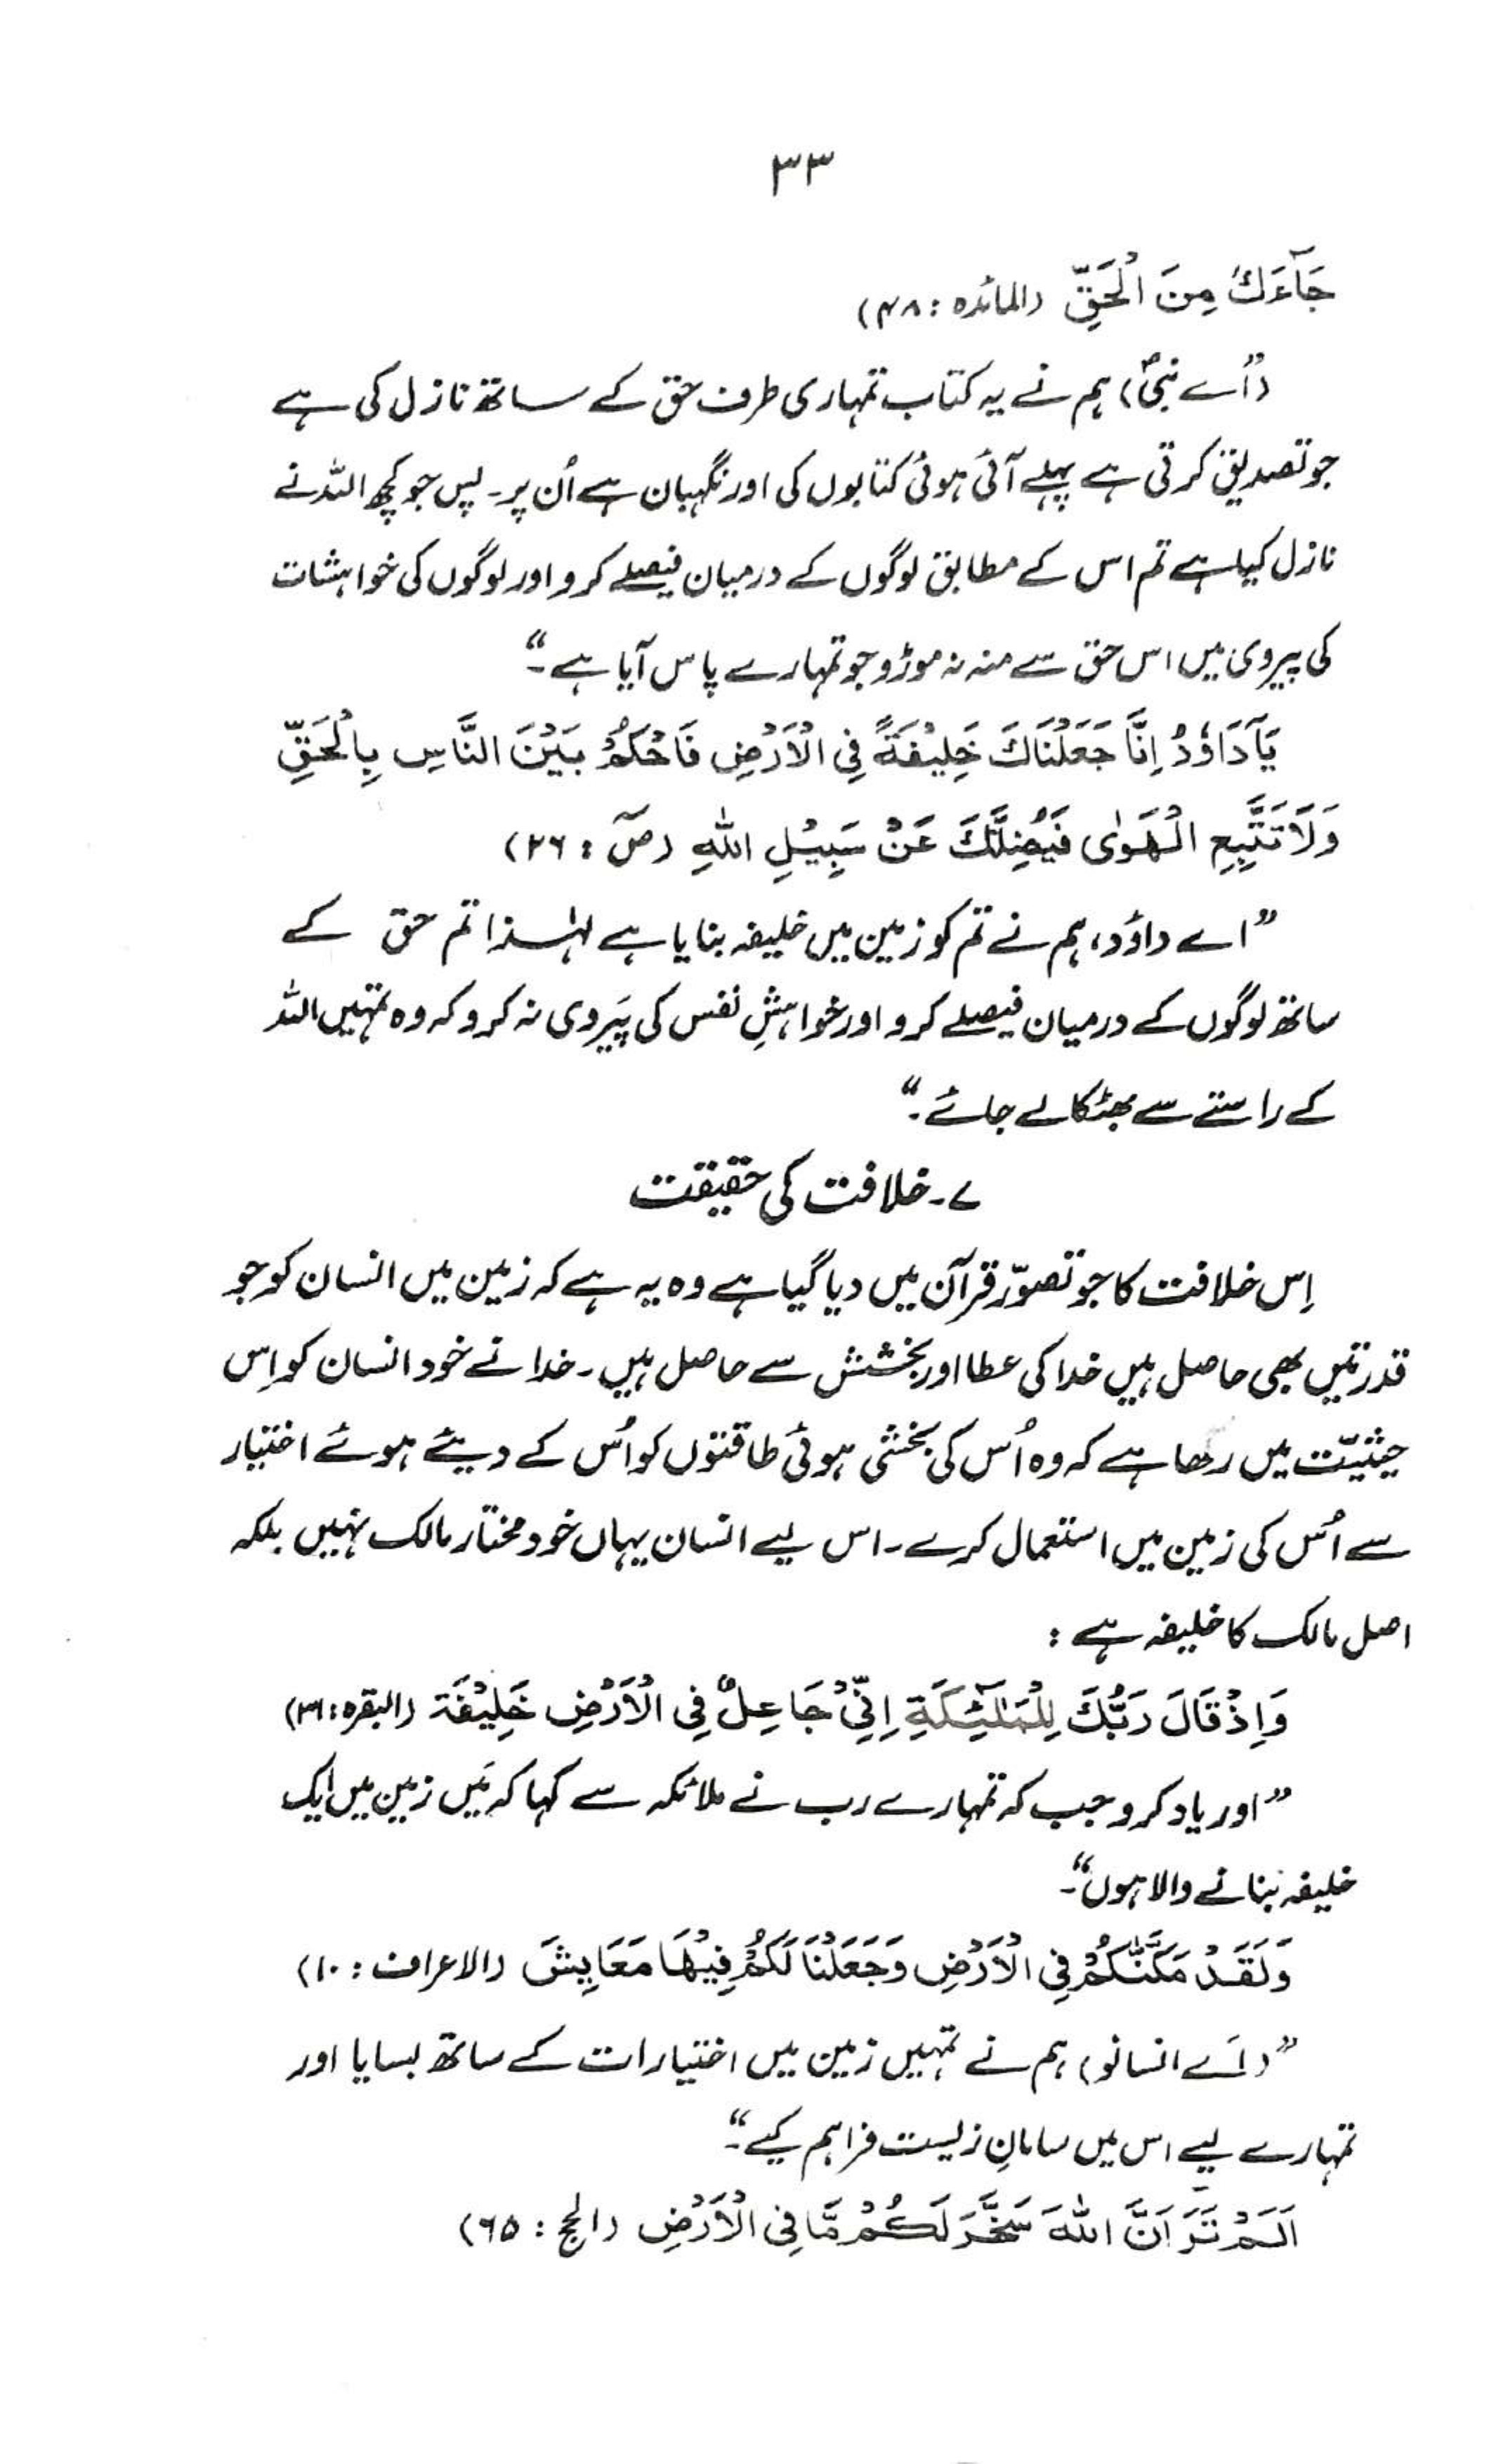 ۳۳
جَآءَكَ مِنَ الْحَقِّ (المائدہ: ۴۸)
”(اَے نبیؐ) ہم نے یہ کتاب تمہاری طرف حق کے ساتھ نازل کی ہے
جو تصدیق کرتی ہے پہلے آئی ہوئی کتابوں کی اور نگہبان ہے اُن پر۔ پس جو کچھ اللہ نے
نازل کیا ہے تم اس کے مطابق لوگوں کے درمیان فیصلے کرو اور لوگوں کی خواہشات
کی پیروی میں اس حق سے منہ نہ موڑو جو تمہارے پاس آیا ہے۔“
يَآدَاوٗدُ اِنَّا جَعَلْنَاكَ خَلِيْفَةً فِي الْاَرْضِ فَاحْكُمْ بَيْنَ النَّاسِ بِالْحَقِّ
وَلَا تَتَّبِعِ الْهَوٰى فَيُضِلَّكَ عَنْ سَبِيْلِ اللهِ (صٓ : ۲۶)
”اے داؤد، ہم نے تم کو زمین میں خلیفہ بنایا ہے لہٰذا تم حق کے
ساتھ لوگوں کے درمیان فیصلے کرو اور خواہشِ نفس کی پَیروی نہ کرو کہ وہ تمہیں اللہ
کے راستے سے بھٹکا لے جائے۔“
۷۔ خلافت کی حقیقت
اِس خلافت کا جو تصوّر قرآن میں دیا گیا ہے وہ یہ ہے کہ زمین میں انسان کو جو
قدرتیں بھی حاصل ہیں خدا کی عطا اور بخشش سے حاصل ہیں۔ خدا نے خود انسان کو اِس
حیثیّت میں رکھا ہے کہ وہ اُس کی بخشی ہوئی طاقتوں کو اُس کے دیئے ہوئے اختیار
سے اُس کی زمین میں استعمال کرے۔ اس لیے انسان یہاں خود مختار مالک نہیں بلکہ
اصل مالک کا خلیفہ ہے :
وَاِذْ قَالَ رَبُّكَ لِلْمَلٰٓئِكَةِ اِنِّيْ جَاعِلٌ فِي الْاَرْضِ خَلِيْفَة (البقرہ: ۳۱)
”اور یاد کرو جب کہ تمہارے رب نے ملائکہ سے کہا کہ مَیں زمین میں ایک
خلیفہ بنانے والا ہوں“۔
وَلَقَدْ مَكَّنّٰكُمْ فِي الْاَرْضِ وَجَعَلْنَا لَكُمْ فِيْهَا مَعَايِشَ (الاعراف : ۱۰)
”(اَے انسانو) ہم نے تمہیں زمین میں اختیارات کے ساتھ بسایا اور
تمہارے لیے اس میں سامانِ زیست فراہم کیے“۔
اَلَمْ تَرَ اَنَّ اللهَ سَخَّرَ لَكُمْ مَّا فِي الْاَرْضِ (الحج : ۶۵)